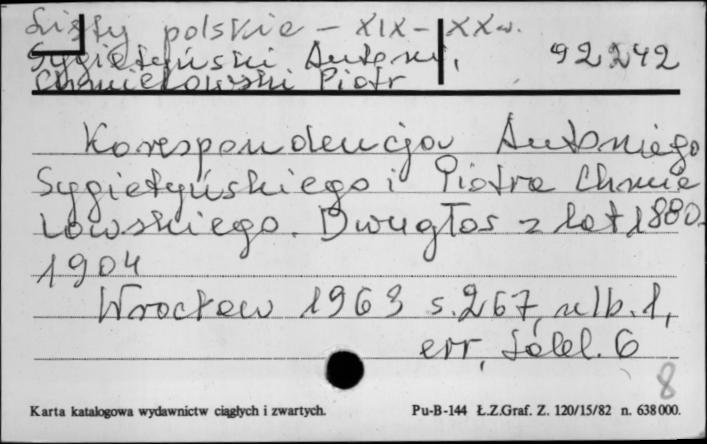 Listy polskie - XIX - XX w.
Sygietyński Antoni, 92242
Chmielowski Piotr
Korespondencja Antoniego
Sygietyńskiego i Piotra Chmie
lowskiego. Dwugłos z lat 1880-
1904
Wrocław 1963 s. 267, nlb. 1,
err, tabl. 6
8
Karta katalogowa wydawnictw ciągłych i zwartych. Pu-B-144 Ł.Z.Graf. Z. 120/15/82 n. 638 000.